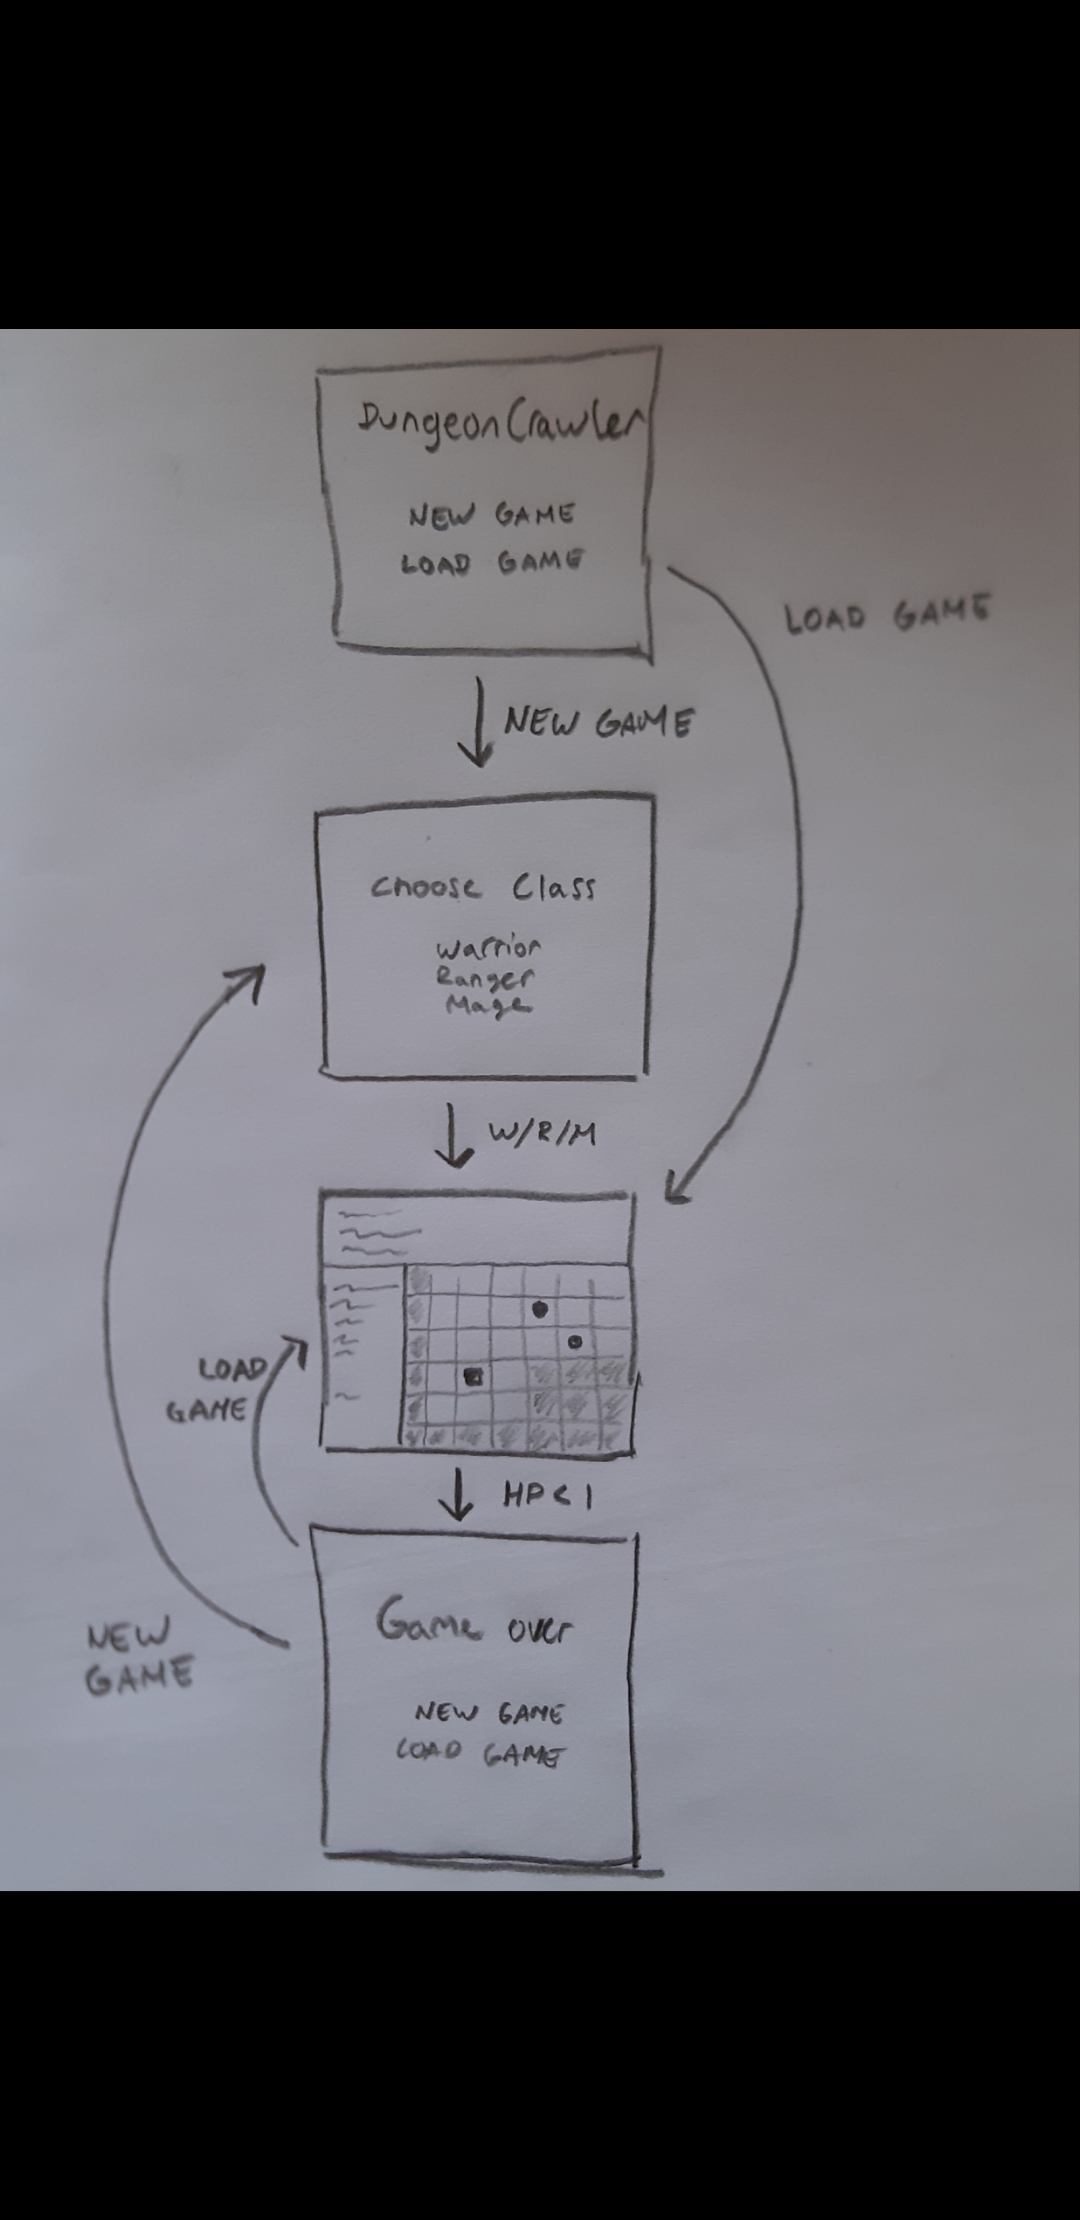 DungeonCrawler
NEW GAME
LOAD GAME
LOAD GAME
NEW GAME
Choose Class
Warrior
Ranger
Mage
W/R/M
LOAD
GAME
HP<1
NEW
GAME
Game over
NEW GAME
LOAD GAME